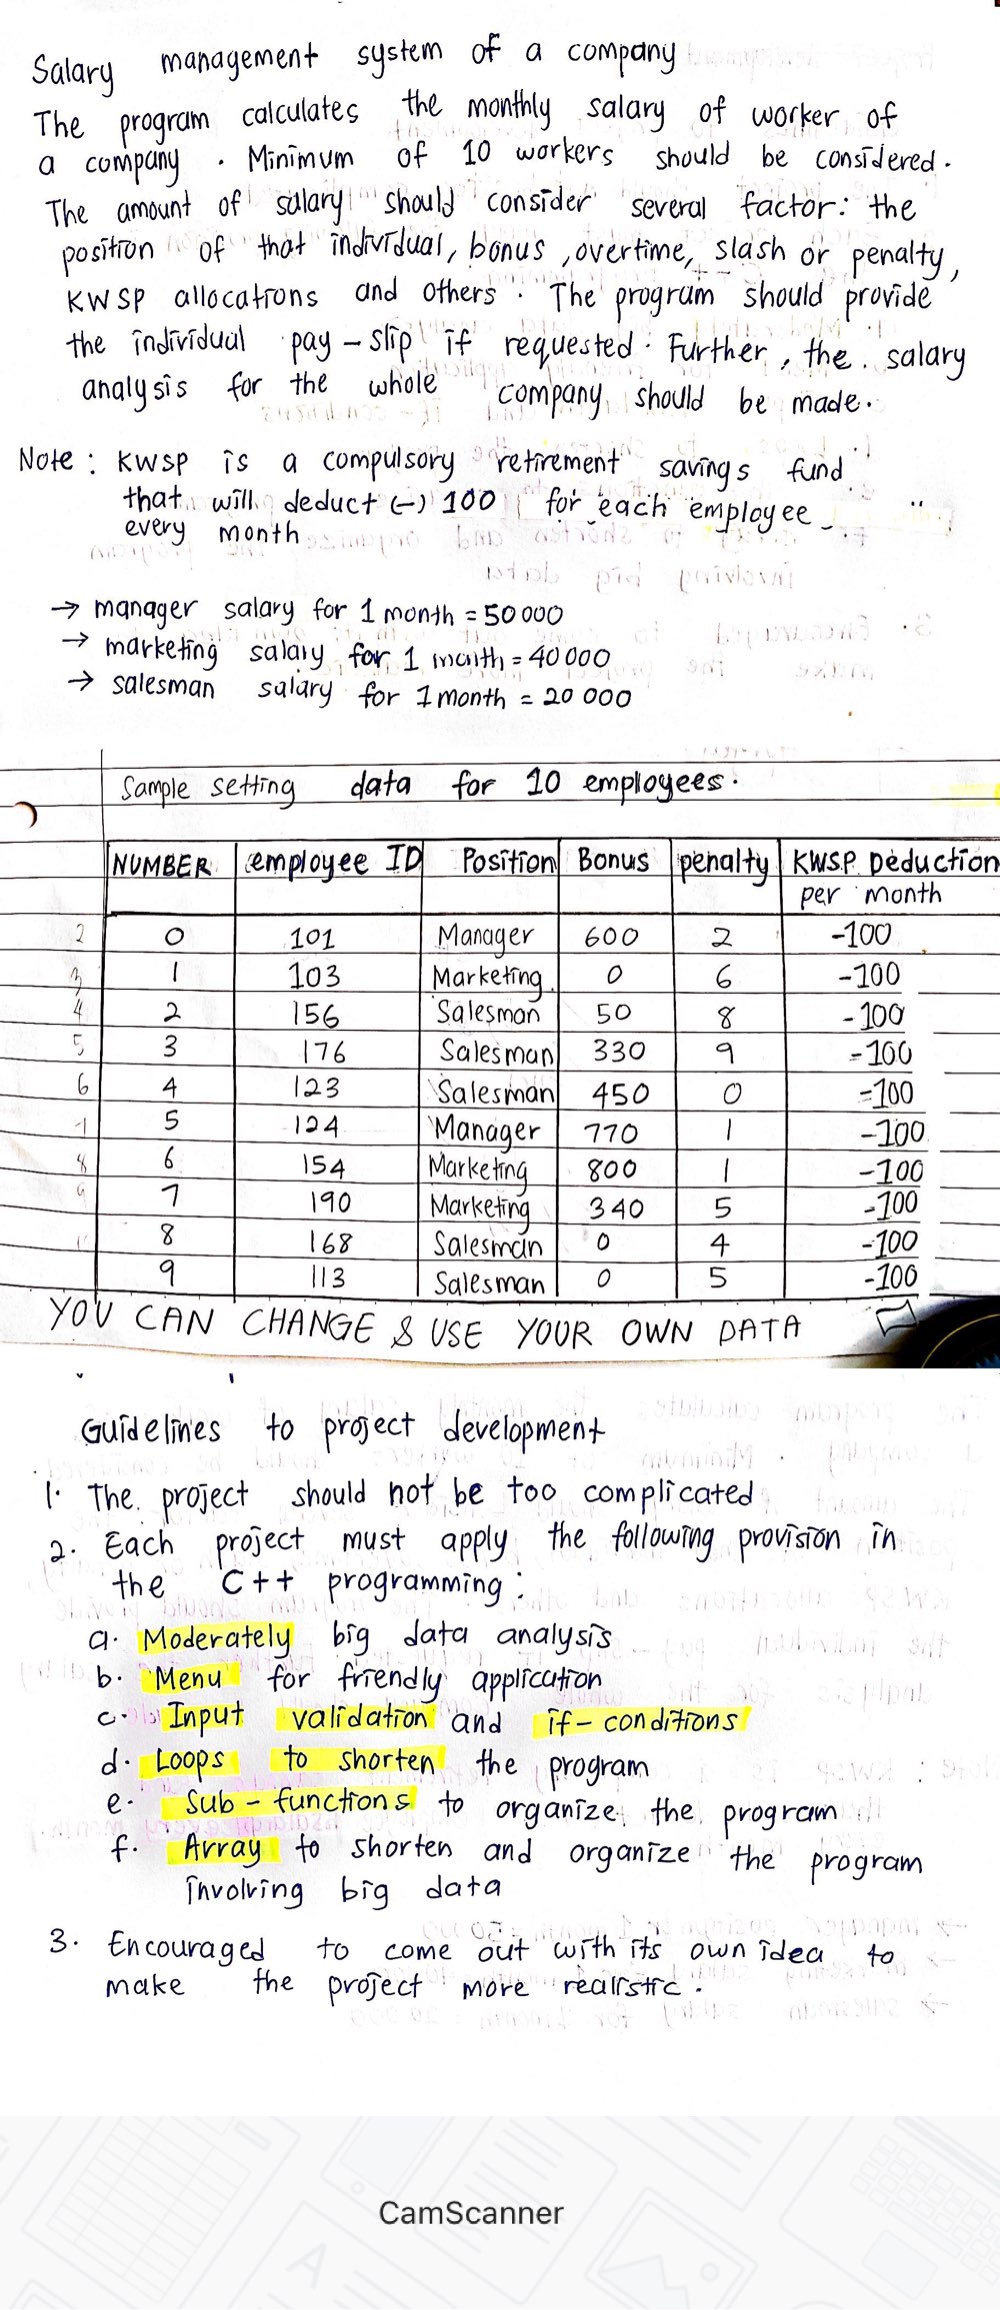 Salary management system of a company
The program calculates the monthly salary of worker of
a company. Minimum of 10 workers should be considered.
The amount of salary should consider several factor: the
position of that individual, bonus, overtime, slash or penalty,
KWSP allocations and others. The program should provide
the individual pay-slip if requested. Further, the salary
analysis for the whole company should be made.
Note: KWSP is a compulsory retirement savings fund
that will deduct (-) 100 for each employee
every month
→ manager salary for 1 month = 50 000
→ marketing salary for 1 month = 40 000
→ salesman salary for 1 month = 20 000
Sample setting data for 10 employees.
NUMBER employee ID Position Bonus penalty KWSP Deduction
per month
2 0 101 Manager 600 2 -100
3 1 103 Marketing 0 6 -100
4 2 156 Salesman 50 8 -100
5 3 176 Salesman 330 9 -100
6 4 123 Salesman 450 0 -100
5 124 Manager 770 1 -100
8 6 154 Marketing 800 1 -100
9 7 190 Marketing 340 5 -100
8 168 Salesman 0 4 -100
9 113 Salesman 0 5 -100
YOU CAN CHANGE & USE YOUR OWN DATA
Guidelines to project development
1. The project should not be too complicated
2. Each project must apply the following provision in
the C++ programming:
a. Moderately big data analysis
b. Menu for friendly application
c. Input validation and if-conditions
d. Loops to shorten the program
e. Sub-functions to organize the program
f. Array to shorten and organize the program
involving big data
3. Encouraged to come out with its own idea to
make the project more realistic.
CamScanner